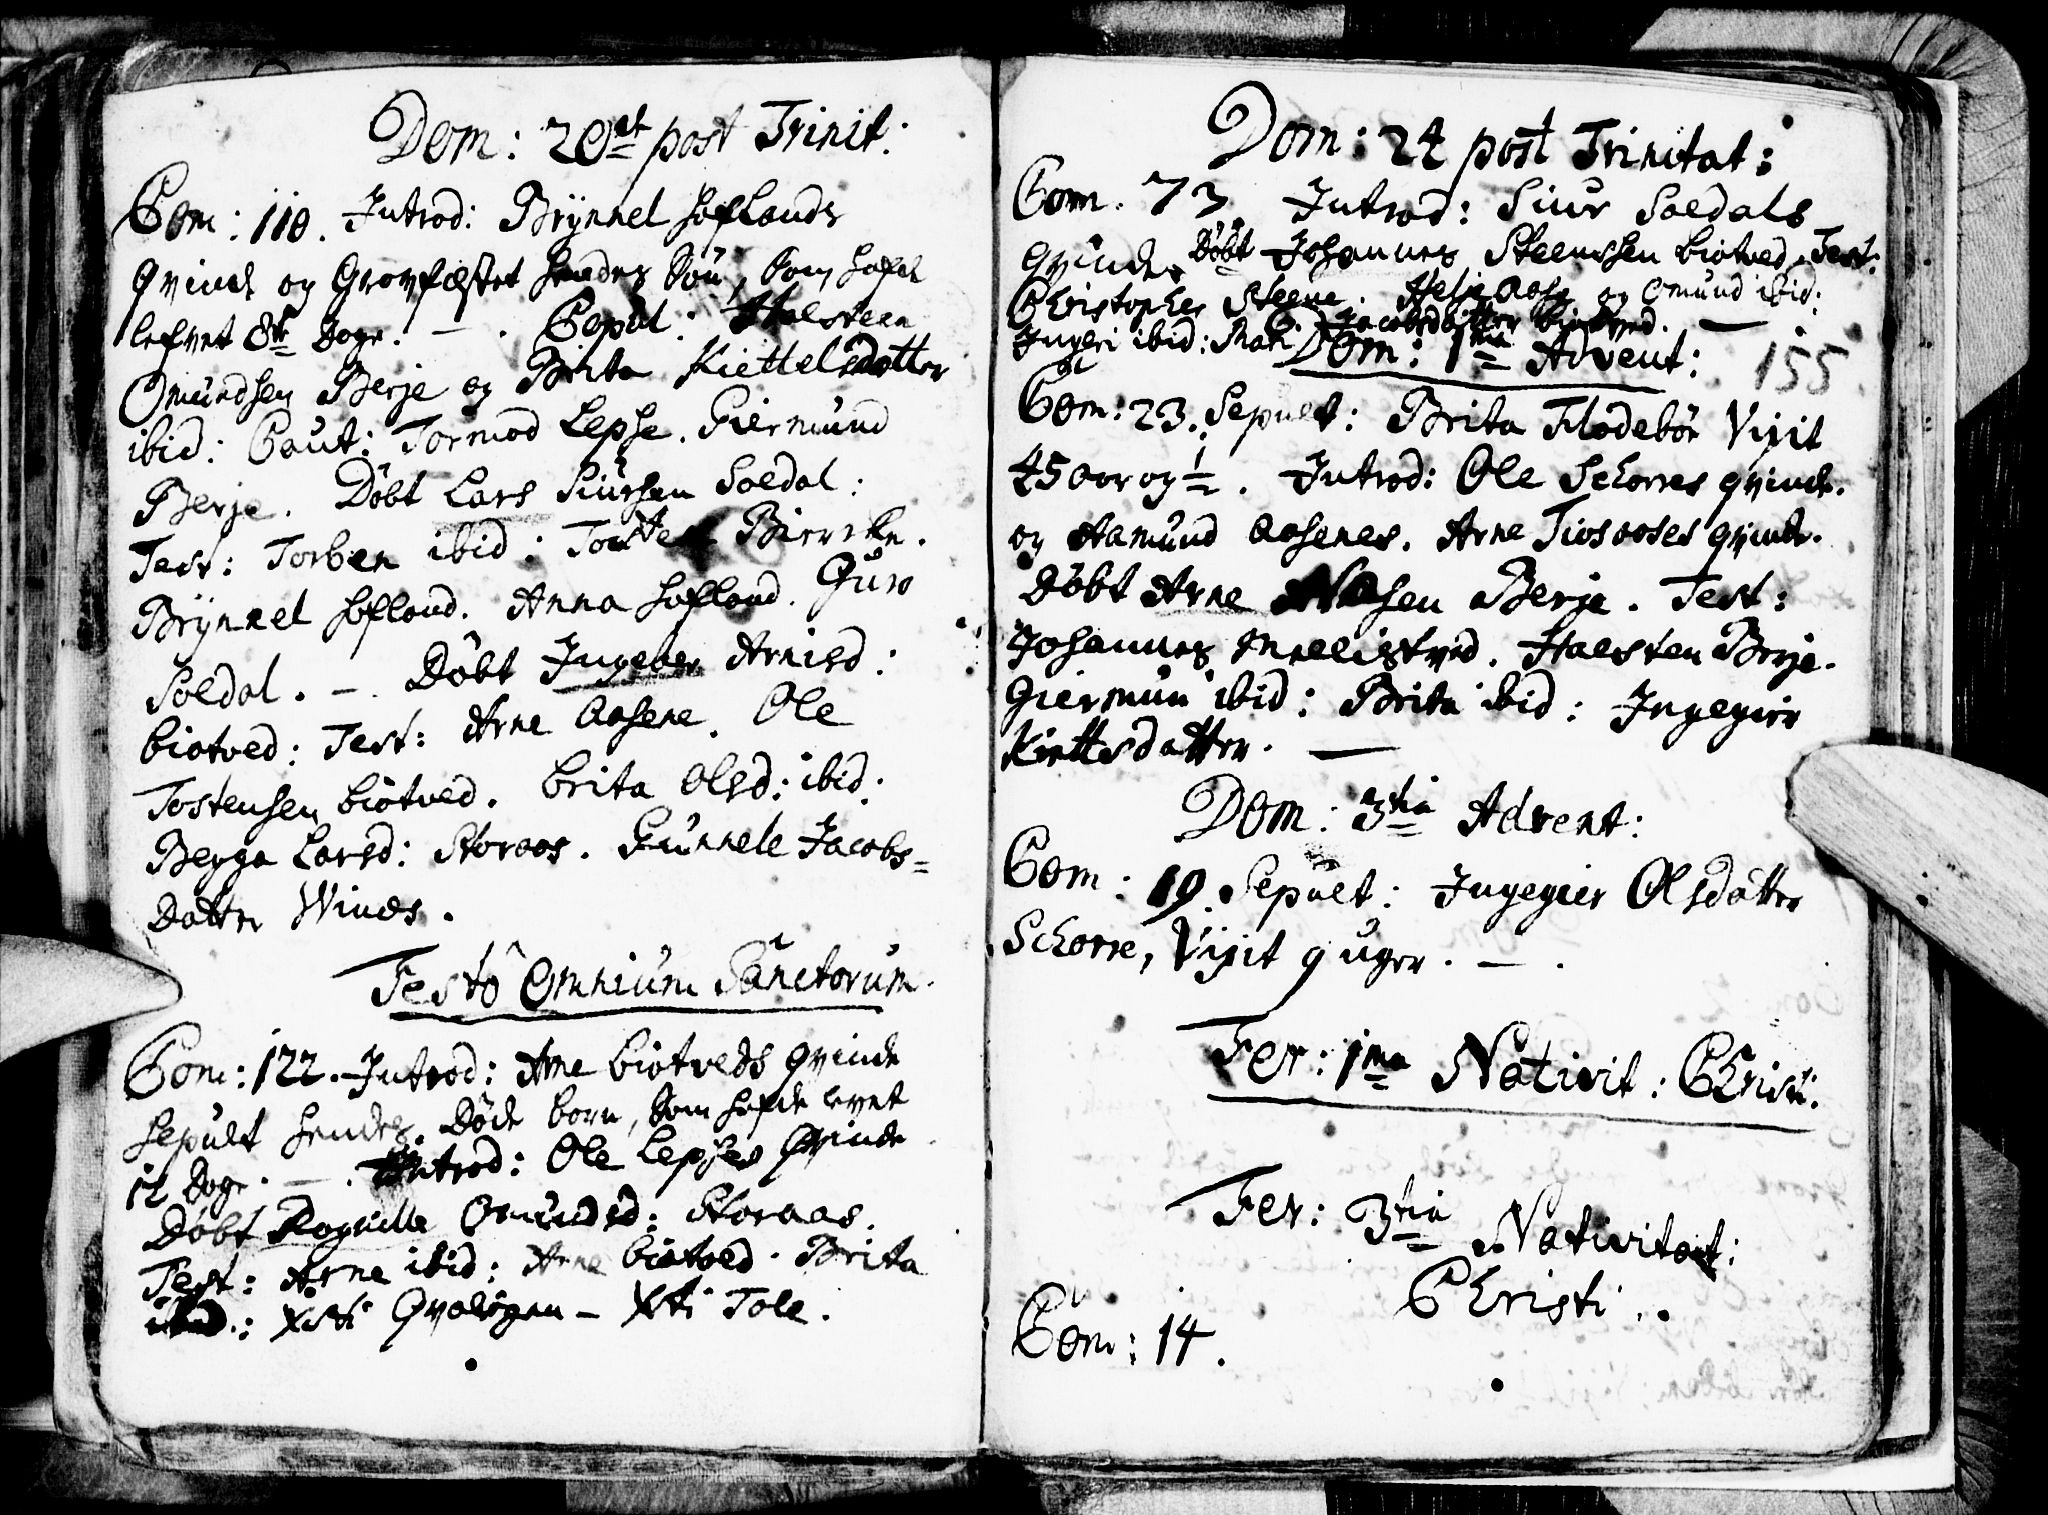 Dom: 20de post Trinit:
Com: 110. Introd: Brÿnnel Hoflands
Qvinde og Grovfæstet hendes Sön, som hafde
lefvet 8te Dage. — . Sepul: Halsteen
Omündsen Berje og Brita Kiettelsdatter
ibid: Caut: Tormod Lepse. Giermünd
Berje. Döbt Lars Siürsen Soldal:
Test: Torben ibid: Tosten Biercke.
Brÿnnel Hofland. Anna Hofland. Guro
Soldal. — . Döbt Ingeber Arnisd:
biotved: Test: Arne Aasene. Ole
Tostensen biotved. brita Olsd: ibid:
Berga Larsd: Storaas. Gunnele Jacobs=
Datter Winds.
Festo Omnium Sanctorum.
Com: 122. Introd: Arne biotveds Qvinde
Sepult hendes Döde born, som hafde levet
12 Dage. — . Introd: Ole Lepses Qvinde
Döbt Rognille Omündsd: Storaas.
Test: Arne ibid: Arne biotved. Brita
ibid: Xsti Qvalögen — Xsti Tole.
Dom: 24 post Trinitat:
Com. 73. Introd: Siur Soldals
Qvinde. Döbt Johannes Steenssen biotved. Test:
Christopher Steene. Helje Aase og Omund ibid:
Ingeri ibid: Mari Jacobsdatter biotved. —
Dom: 1ma Advent: 155
Com: 23. Sepult: Brita Flodebör Vixit
45 Aar og 1/2. Introd: Ole Schorres qvinde.
og Aamund Aasenes. Arne Tiosaases qvinde.
Döbt Arne Nilsen Berje. Test:
Johannes Mælistved. Halsten Berje.
Giermun ibid: Brita ibid: Ingegier
Kiettsdatter. —
Dom: 3tia Advent:
Com: 19. Sepult: Ingegier Olsdatter
Schorre, Vixit 9 uger. — .
Fer: 1ma Nativit: Christi:
Fer: 3tia Nativitat:
Christi..
Com: 14.